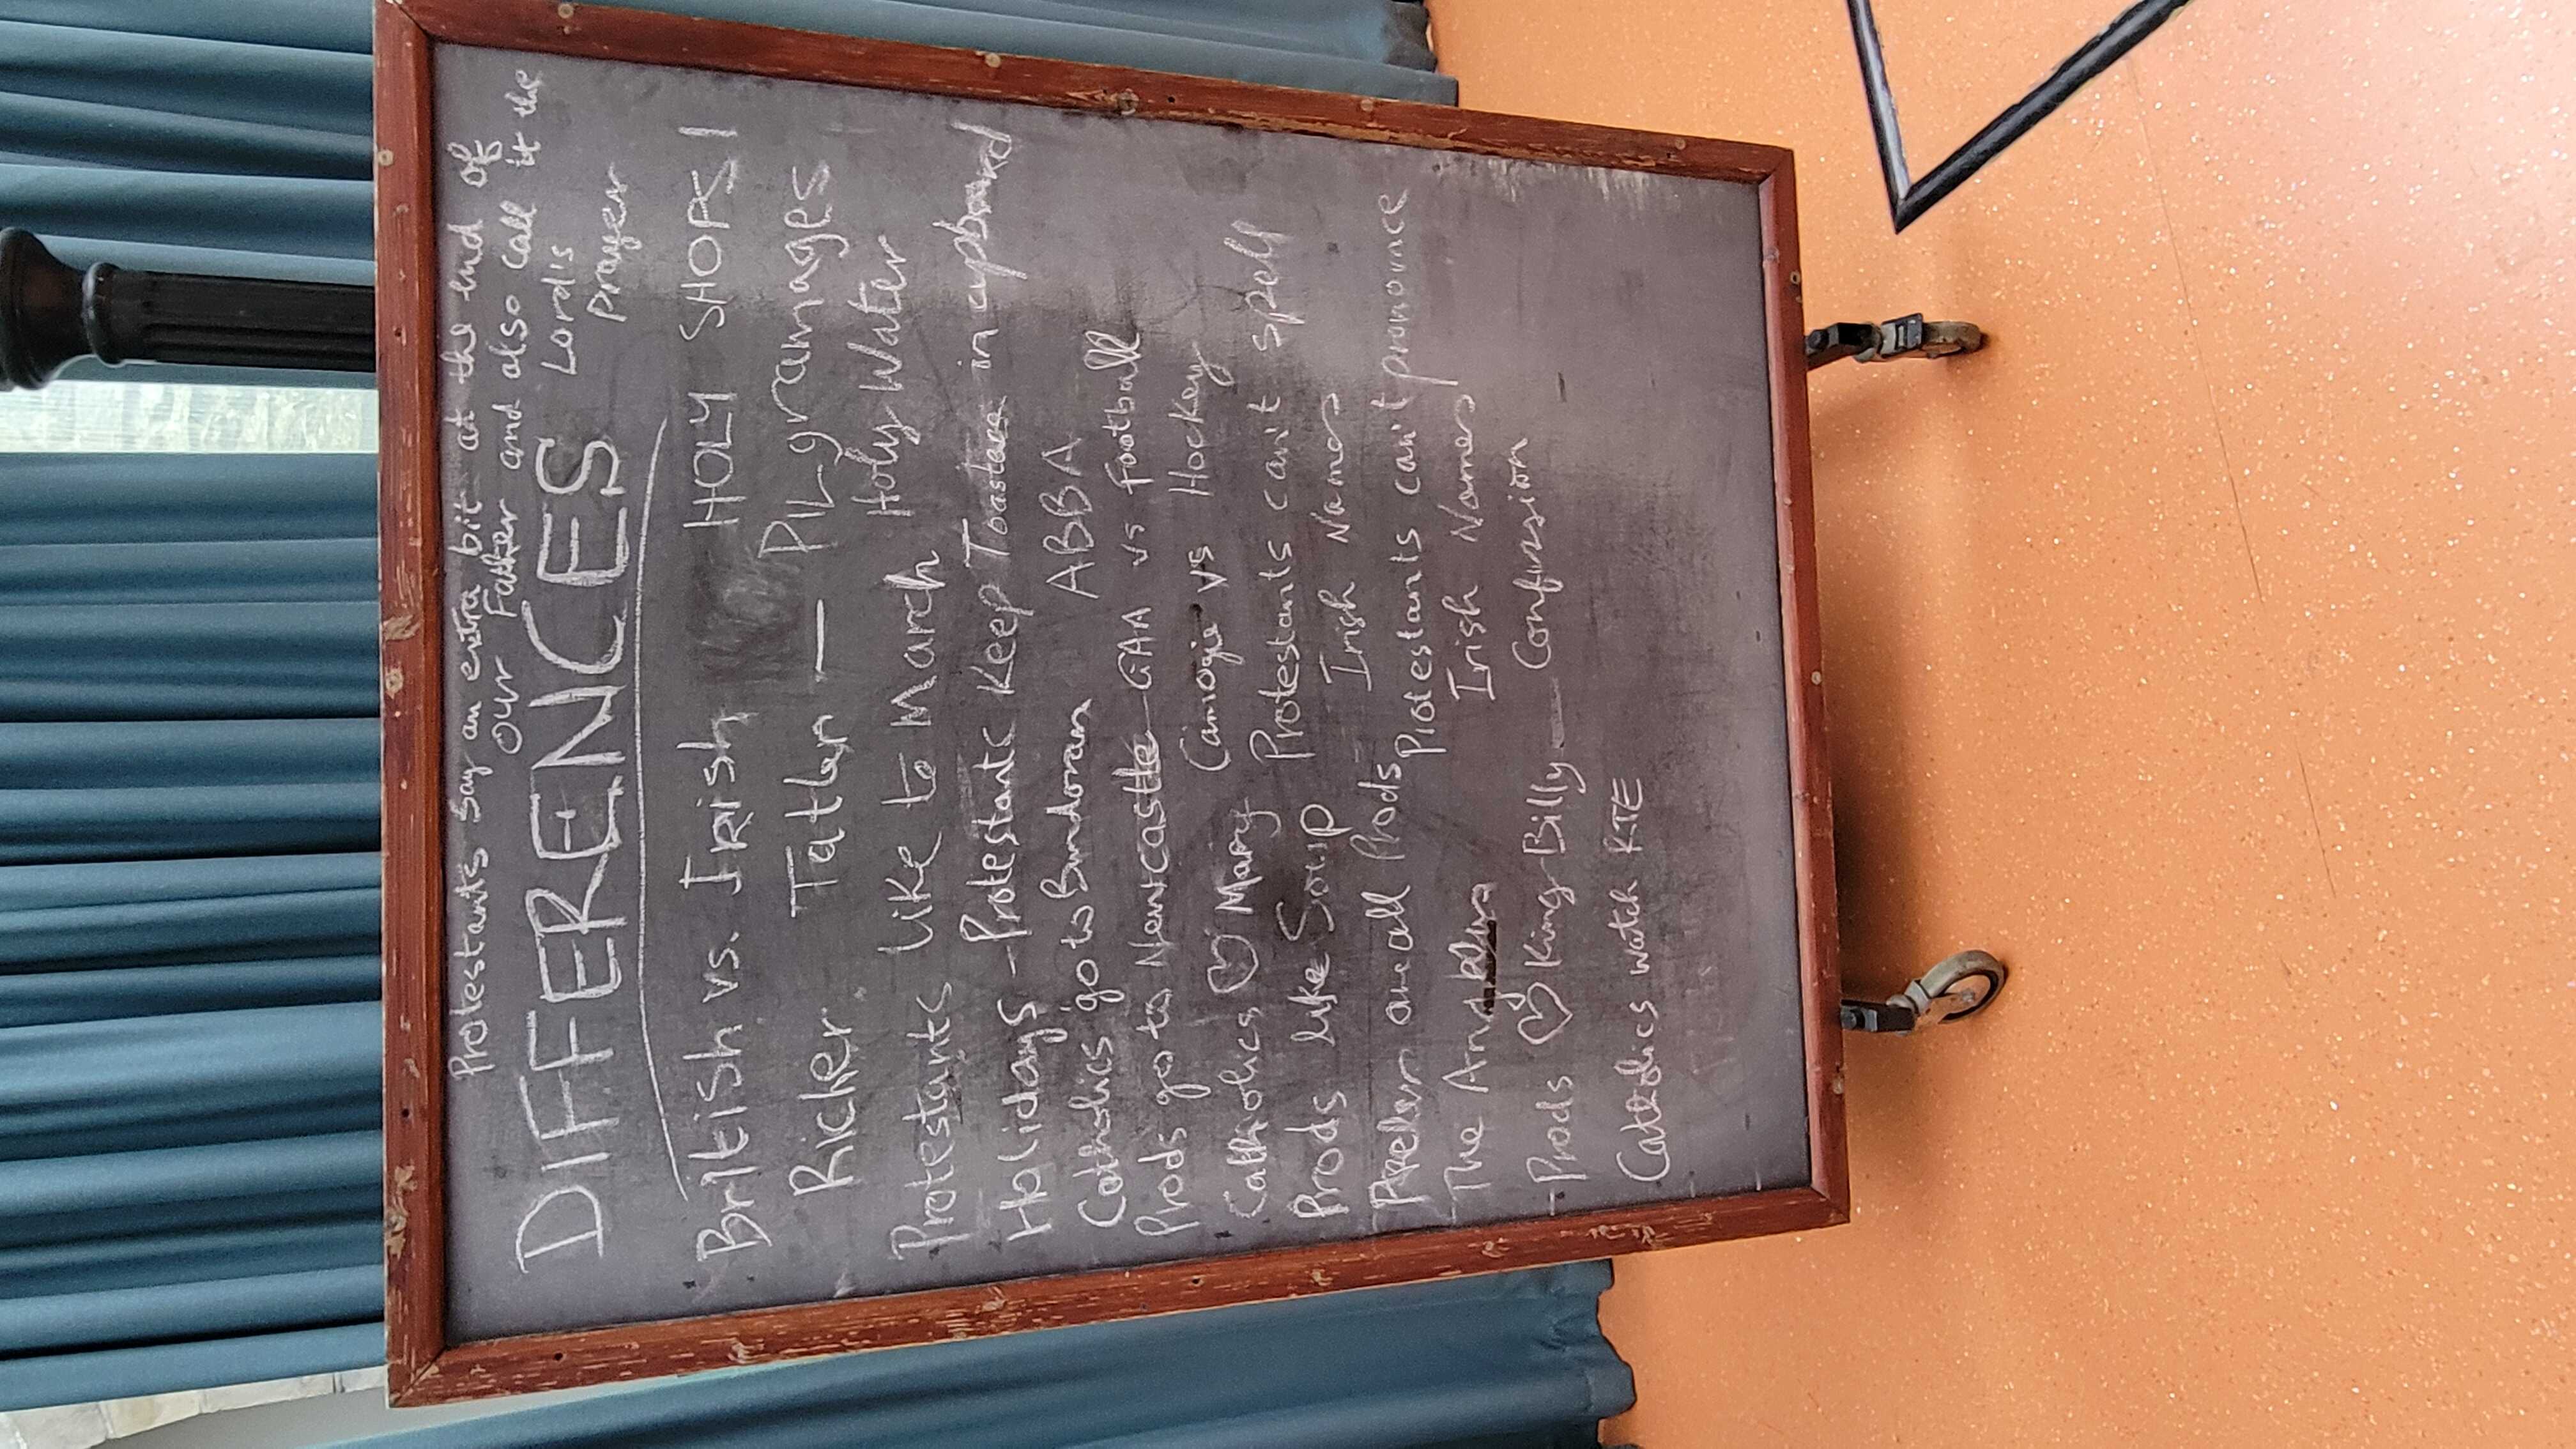 Protestants say an extra bit at the end of
Our Father and also call it the
Lord's
prayer
DIFFERENCES
British vs. Irish HOLY SHOPS!
Richer Taller — PILgramages
Protestants like to March Holy Water
Holidays - Protestants Keep Toasters in cupboard
Catholics go to Bundoran ABBA
Prods go to Newcastle GAA vs Football
Camogie vs Hockey
Catholics ♡ Mary Protestants can't spell
Irish Names
Prods like Soup
are all Prods Protestants can't pronounce
Irish Names
The
- Prods ♡ King Billy — Confession
Catholics watch RTE